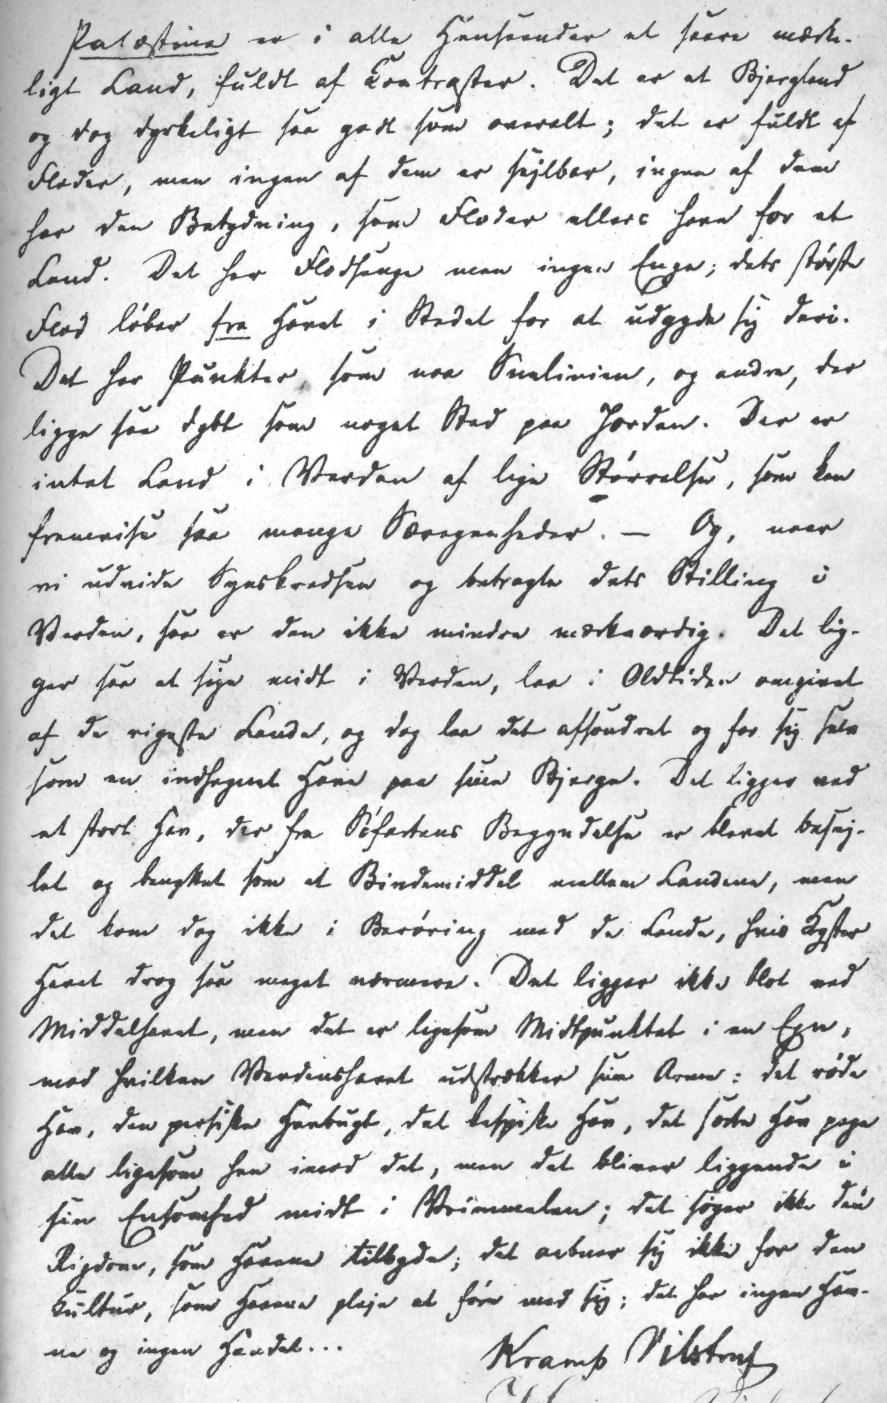 Palæstina er i alle Henseender et saare mærke-
ligt Land, fuldt af Kontraster. Det er et Bjergland
og dog dyrkeligt saa godt som overalt; det er fuldt af
Floder, men ingen af dem er sejlbar, ingen af dem
har den Betydning, som Floder ellers have for et
Land. Det har Flodsenge men ingen Enge; dets største
Flod løber fra Havet i Stedet for at udgyde sig deri.
Det har Punkter, som naa Snelinien, og andre, der
ligge saa dybt som noget Sted paa Jorden. Der er
intet Land i Verden af lige Størrelse, som kan
fremvise saa mange Særegenheder. — Og, naar
vi udvide Synskredsen og betragte dets Stilling i
Verden, saa er den ikke mindre mærkværdig. Det lig-
ger saa at sige midt i Verden, laa i Oldtiden omgivet
af de rigeste Lande, og dog laa det afsondret og for sig selv
som en indhegnet Have paa sine Bjerge. Det ligger ved
et stort Hav, der fra Søfartens Begyndelse er blevet besej-
let og benyttet som et Bindemiddel mellem Landene, men
det kom dog ikke i Berøring med de Lande, hvis Kyster
Havet drog saa meget nærmere. Det ligger ikke blot ved
Middelhavet, men det er ligesom Midtpunktet i en Egn,
mod hvilken Verdenshavet udstrækker sine Arme: det røde
Hav, den persiske Havbugt, det kaspiske Hav, det sorte Hav pege
alle ligesom hen imod det, men det bliver liggende i
sin Ensomhed midt i Vrimmelen; det søger ikke den
Rigdom, som Havene tilbyde; det aabner sig ikke for den
Kultur, som Havene pleje at føre med sig; det har ingen Hav-
ne og ingen Handel...
Kramp Vilstrup